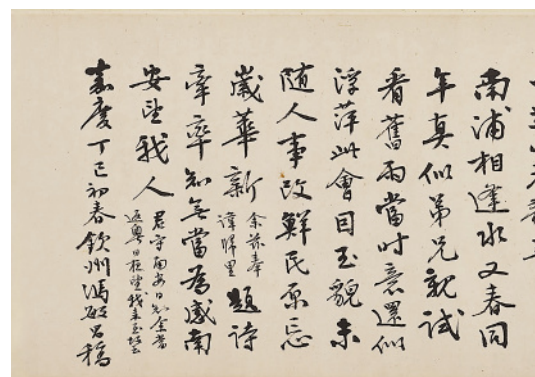 南浦相逢水又春同
年真似弟兄親試
看舊雨當时意還似
浮萍此會因玉貌未
随人事改鮮民原忘
歲華新
余茲奉
諱歸里
題詩
牽率知無當為感南
安望我人
君守南安日知余當
返粤日極望我来至
嘉慶丁巳初春欽州馮敏昌稿